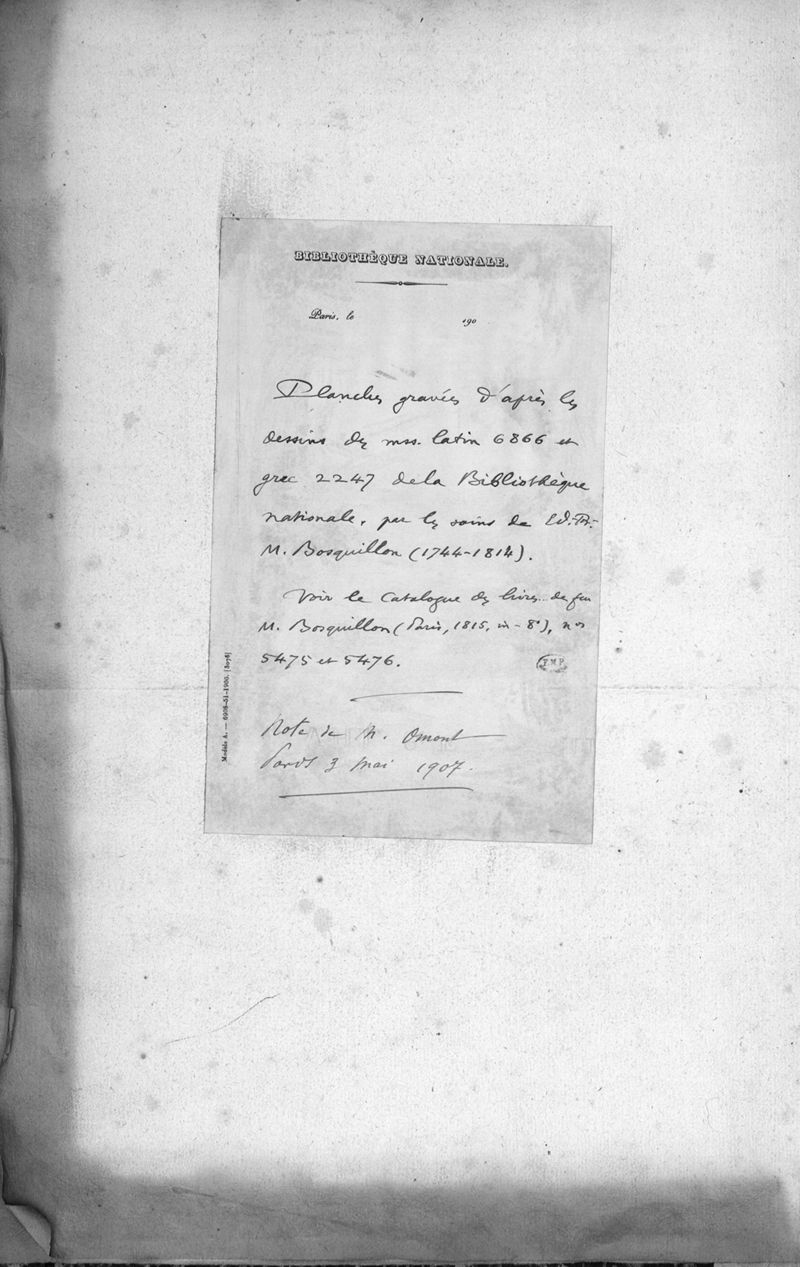 BIBLIOTHÈQUE NATIONALE.
Paris, le 190
Planches gravées d'après les
dessins des mss. latin 6866 et
grec 2247 de la Bibliothèque
nationale, par les soins de Ed.-Fr.-
M. Bosquillon (1744-1814).
Voir le Catalogue des livres de feu
M. Bosquillon (Paris, 1815, in-8°), nos
5475 et 5476.
FMP
Note de M. Omont
Paris 3 mai 1907.
Modèle A. —